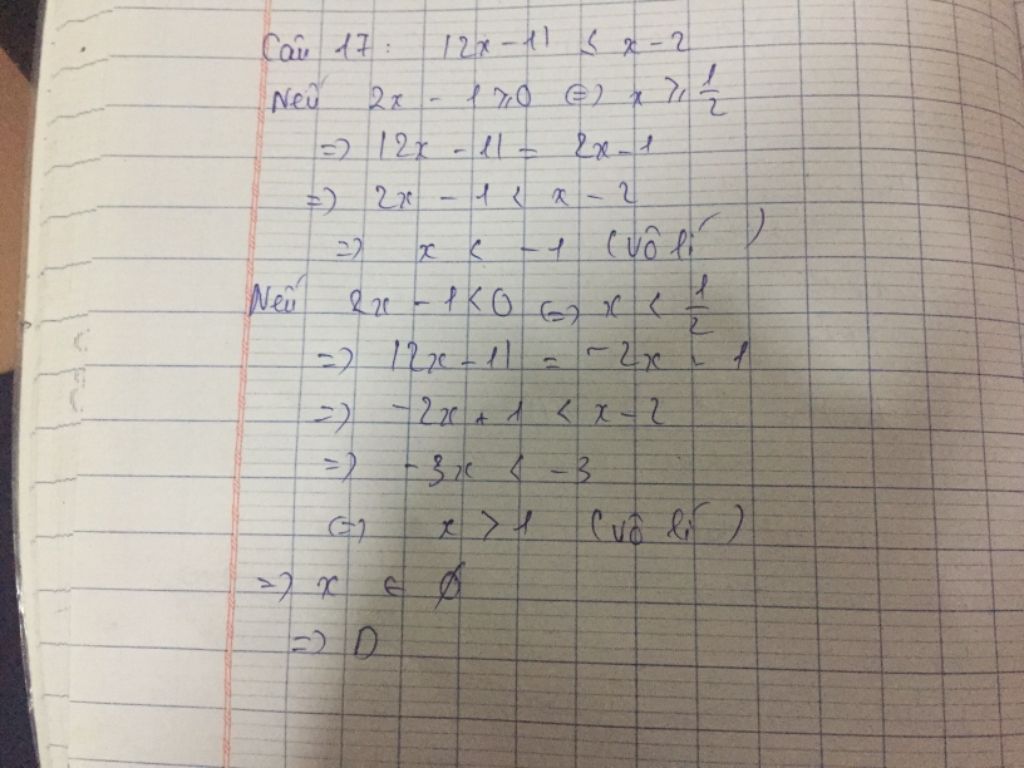 Câu 17: |2x - 1| < x - 2
Nếu 2x - 1 ≥ 0 <=> x ≥ 1/2
=> |2x - 1| = 2x - 1
=> 2x - 1 < x - 2
=> x < -1 (vô lí)
Nếu 2x - 1 < 0 <=> x < 1/2
=> |2x - 1| = -2x - 1
=> -2x + 1 < x - 2
=> -3x < -3
<=> x > 1 (vô lí)
=> x ∈ ∅
=> D